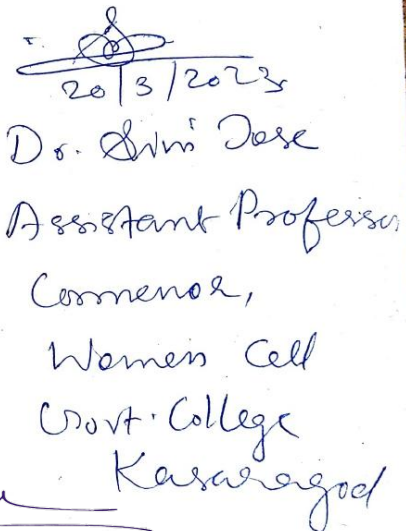 20/3/2023
Dr. Simi Jose
Assistant Professor
Convenor,
Women Cell
Govt. College
Kasaragod